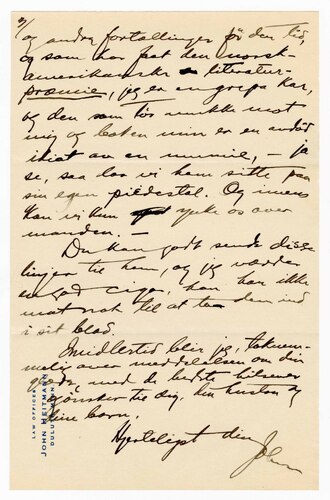 3/
og andre fortællinger før den tid,
og som har faat den norsk-
amerikanske literatur-
præmie, jeg er en grepa kar,
og den som tør mukke mot
mig og boken min er en andød
idiot av en mummie, – ja
se, saa lar vi ham sitte paa
sin egen piedestal. Og imens
kan vi kun ynke os over
manden. –
Du kan godt sende disse
linjer til ham, og jeg vædder
en god cigar, han har ikke
mot nok til at ta dem ind
i sit blad.
Imidlertid blir jeg, taknem-
melig over meddelelsen om din
glæde, med de bedste hilsener
og ønsker til dig, din hustru og
dine barn.
Hjerteligst din
John
LAW OFFICES
JOHN HEITMANN
DULUTH, MINN.